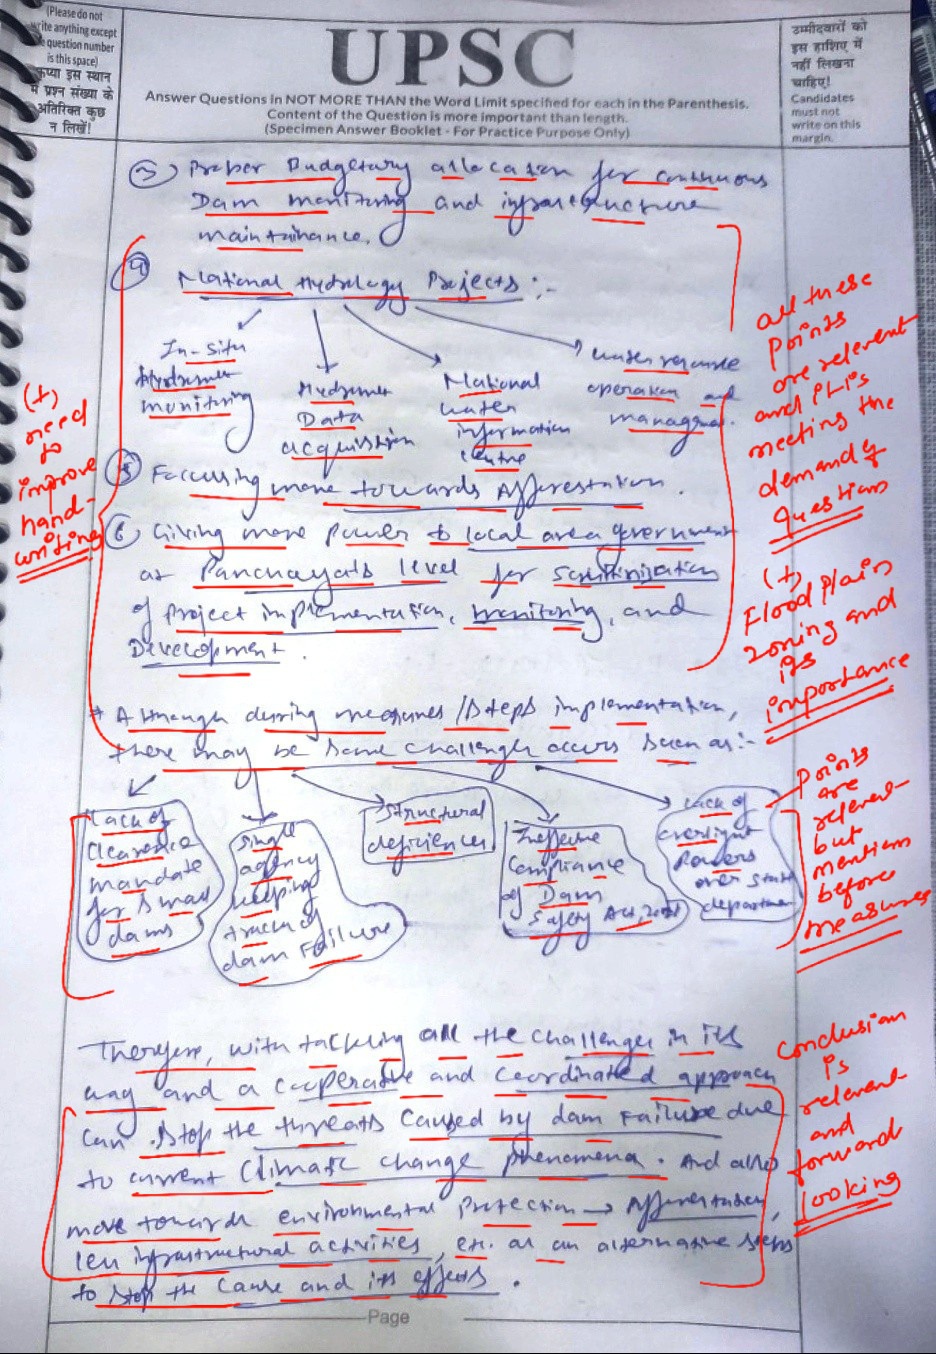 (Please do not
write anything except
the question number
is this space)
कृप्या इस स्थान
में प्रश्न संख्या के
अतिरिक्त कुछ
न लिखें!
UPSC
Answer Questions in NOT MORE THAN the Word Limit specified for each in the Parenthesis.
Content of the Question is more important than length.
(Specimen Answer Booklet - For Practice Purpose Only)
उम्मीदवारों को
इस हाशिए में
नहीं लिखना
चाहिए!
Candidates
must not
write on this
margin.
③ Proper Budgetary allocation for continuous
Dam monitoring and infrastructure
maintainance.
④ National Hydrology Projects:-
In-situ
Hydromet
monitoring
Hydromet
Data
acquisition
National
water
information
centre
water resource
operation and
managmt.
⑤ Foccussing more towards Afforestation.
⑥ Giving more power to local area government
at Panchayats level for scrutinization
of project implementation, monitoring, and
Development.
* Although during measures/steps implementation,
there may be some challenges occurs such as:-
Lack of
Clearance
mandate
for small
dams
Single
agency
keeping
track of
dam Failure
Structural
deficiences
Ineffective
Compliance
of Dam
Safety Act, 2021
Lack of
oversight
Powers
over state
department
Therefore, with tackling all the challenges in its
way and a cooperative and coordinated approach
can stop the threats caused by dam Failure due
to current climatic change phenomena. And also
move towards environmental Protection → Afforestation,
less infrastructural activities, etc. as an alternative steps
to stop the cause and its effects.
(+)
need
to
improve
hand-
writing
all these
points
are relevent
and pt.is
meeting the
demand of
question
(+)
Flood plain
zoning and
its
importance
points
are
relevent
but
mention
before
measures
Conclusion
is
relevent
and
forward
looking
Page